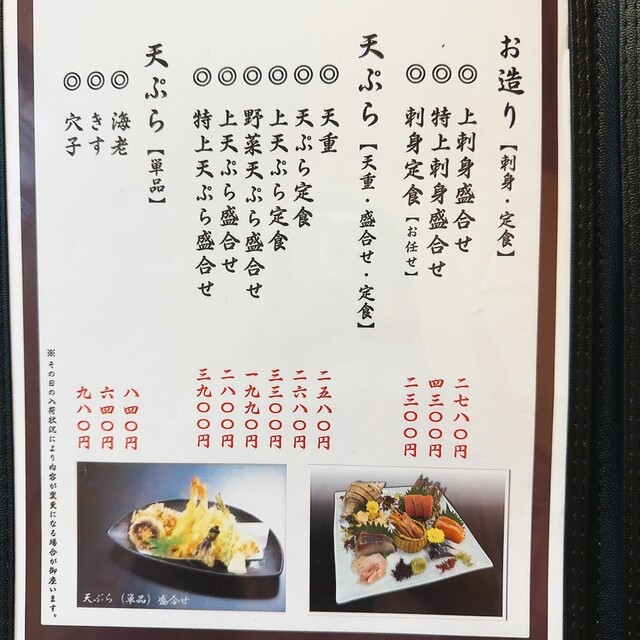 お造り【刺身・定食】
◎上刺身盛合せ 二七八〇円
◎特上刺身盛合せ 四三〇〇円
◎刺身定食【お任せ】 二三〇〇円
天ぷら【天重・盛合せ・定食】
◎天重 二五八〇円
◎天ぷら定食 二六八〇円
◎上天ぷら定食 三三〇〇円
◎野菜天ぷら盛合せ 一九九〇円
◎上天ぷら盛合せ 二八〇〇円
◎特上天ぷら盛合せ 三九〇〇円
天ぷら【単品】
◎海老 八四〇円
◎きす 六四〇円
◎穴子 九八〇円
※その日の入荷状況により内容が変更になる場合が御座います。
天ぷら（単品）盛合せ